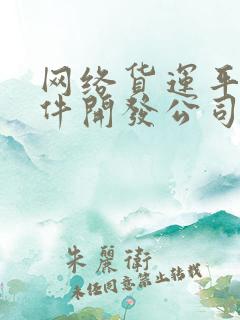 网络货运平
件開發公司
朱麗衛
未经同意禁止转载